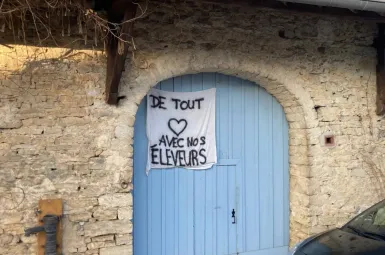 DE TOUT
♥
AVEC NOS
ÉLEVEURS